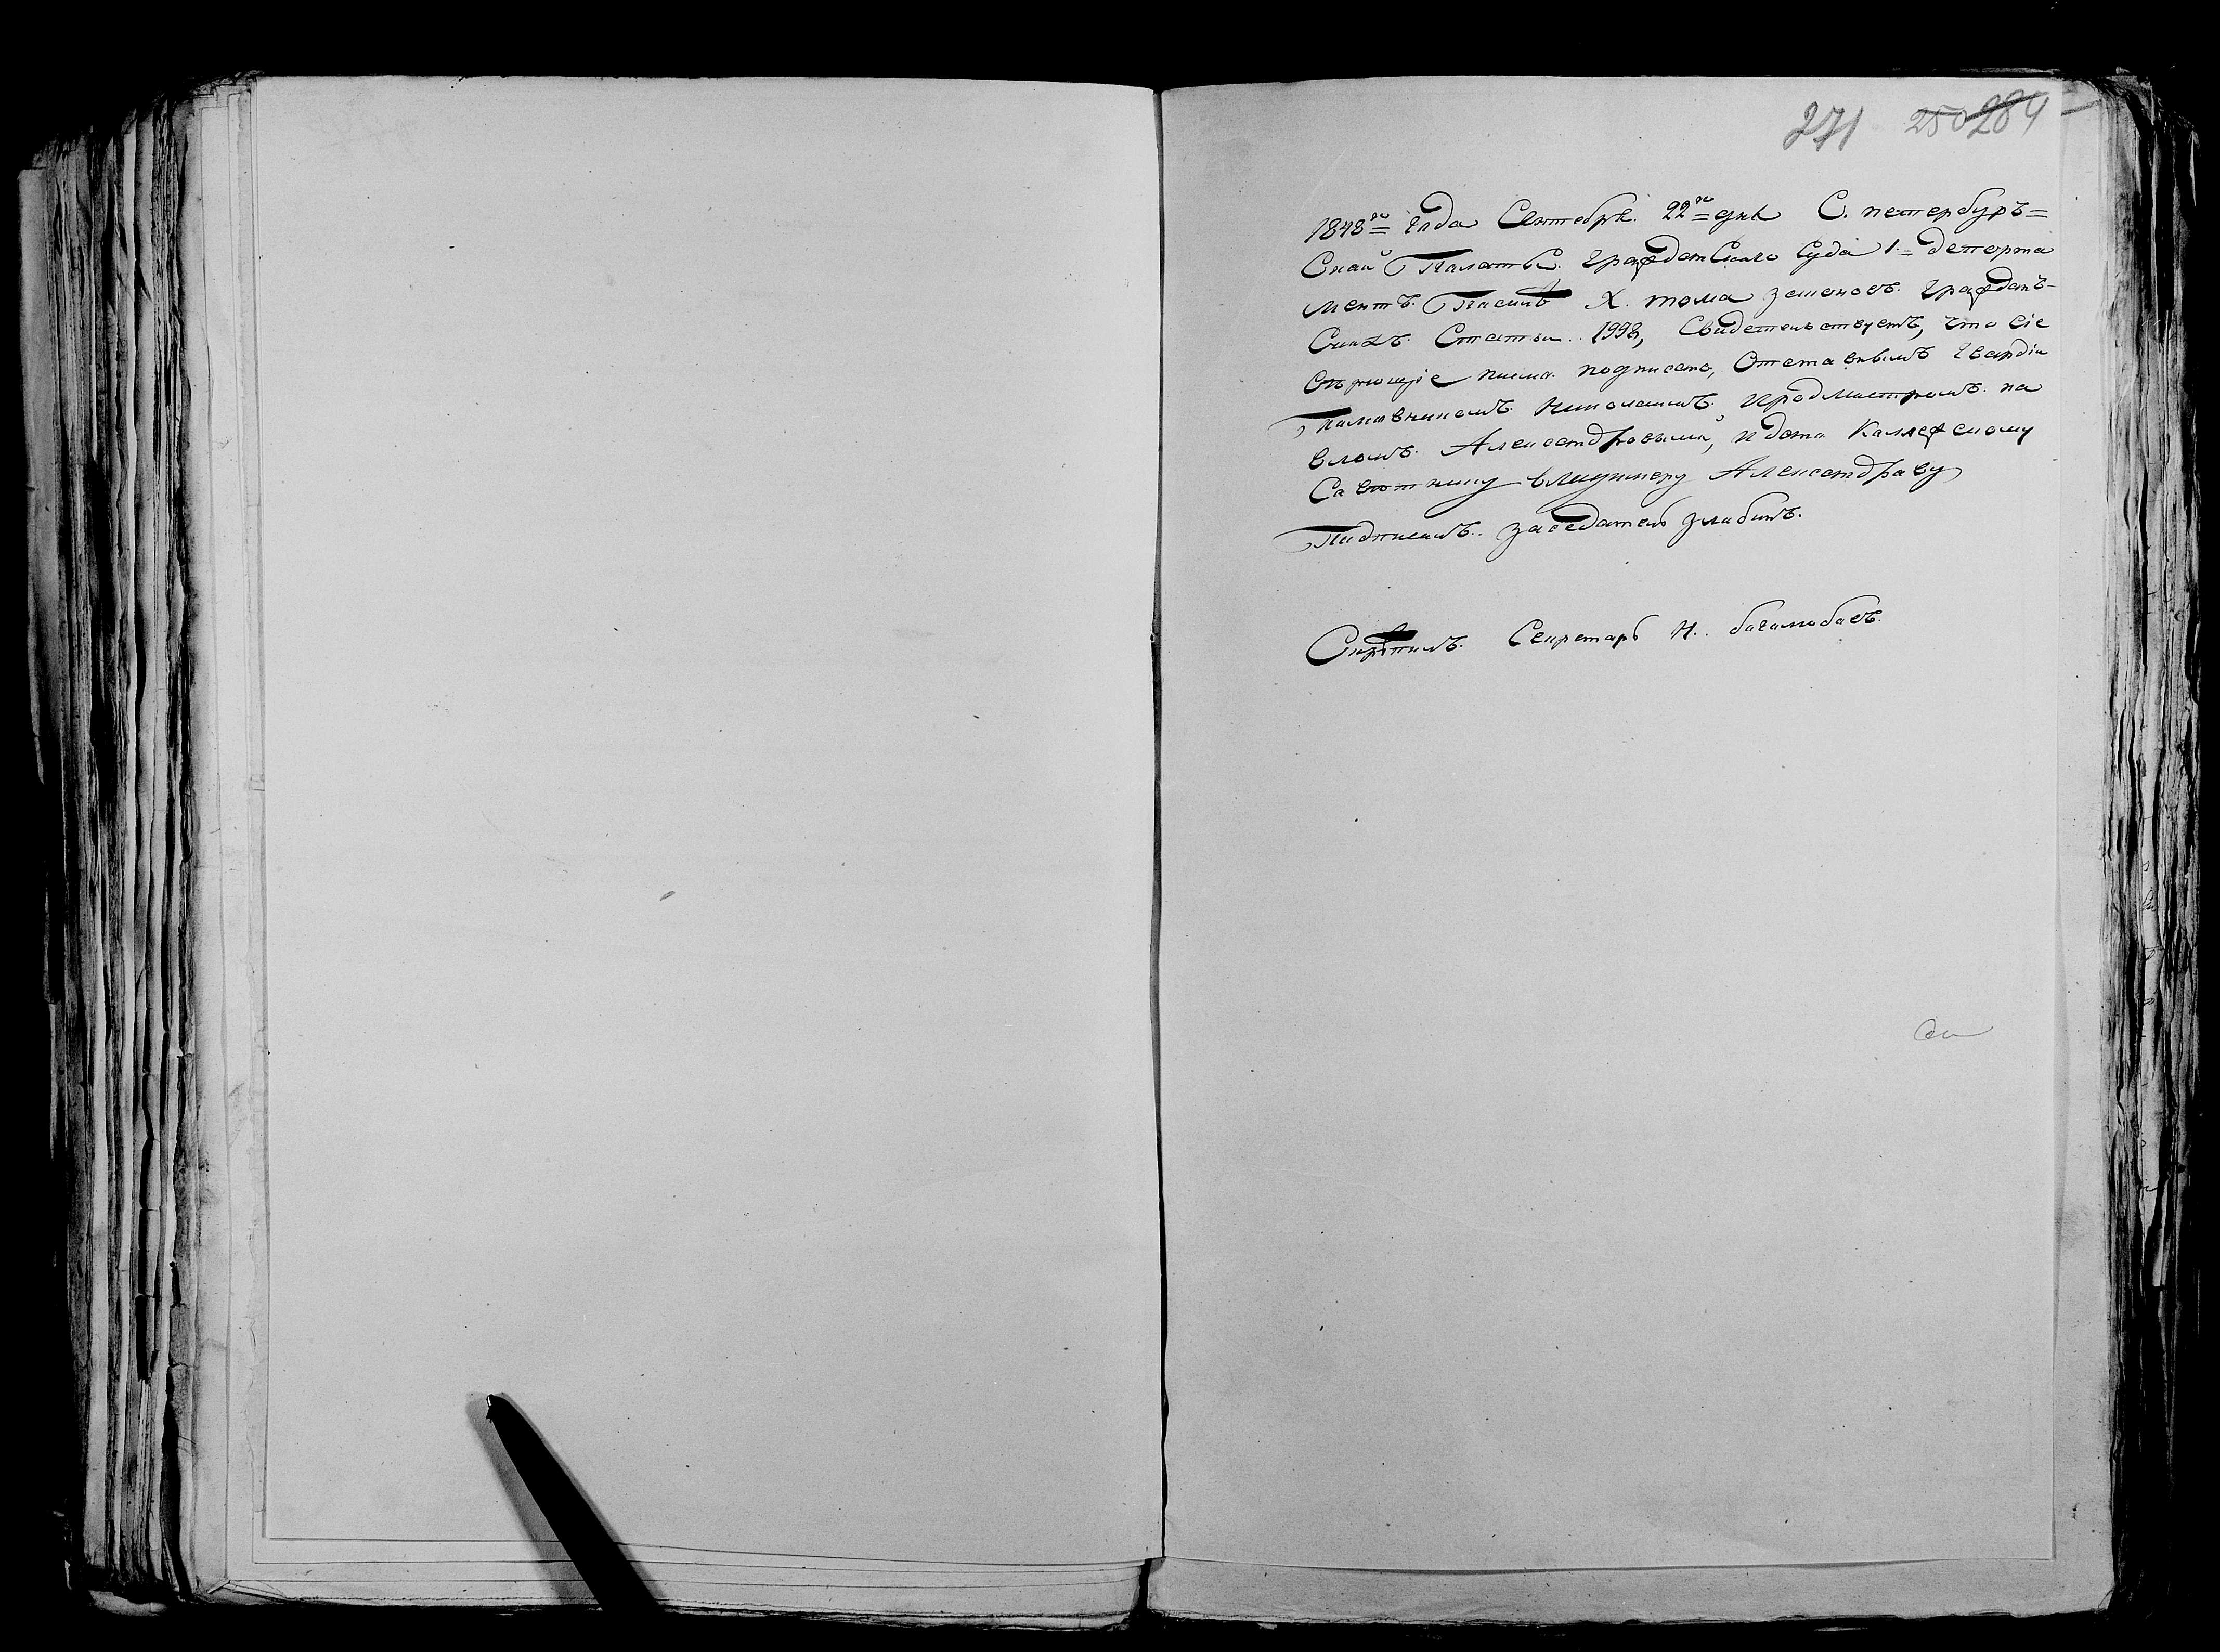 271 250 284
1848го Года Сентебре. 22го дне С. петербургъ=
Скай Палаты. Гражданскаго Суда 1= департа
ментъ. Посилѣ X. тома законовъ. Граждан-
Скихъ. Статьи.. 1998, Свидетельствуетъ, что сіе
писмо. подписано, Отставнымъ Гвардіи
Полковникомъ. Николаемъ. Па
вломъ. Александровымъ, и дано Коллежскому
Саветнику владимеру Александраву
Падписалъ.. заседатель злабинъ.
Скрѣпилъ. Секретарь Н..